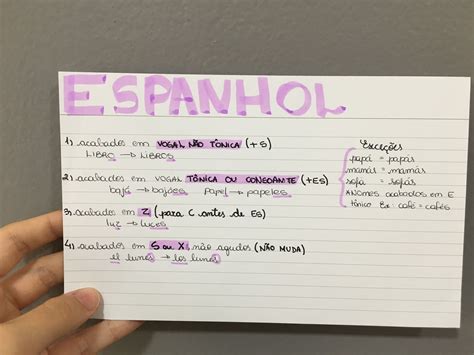 ESPANHOL
1) acabados em VOGAL NÃO TÔNICA (+ S)
LIBRO → LIBROS
2) acabados em VOGAL TÔNICA OU CONSOANTE (+ES)
bajá → bajáes Papel → papeles
3) acabados em Z (para C antes de ES)
luz → luces
4) acabados em S ou X não agudos (NÃO MUDA)
el lunes → los lunes
Exceções
papá = papás
mamá = mamás
sofá = sofás
*Nomes acabados em E
tônico Ex: café = cafés